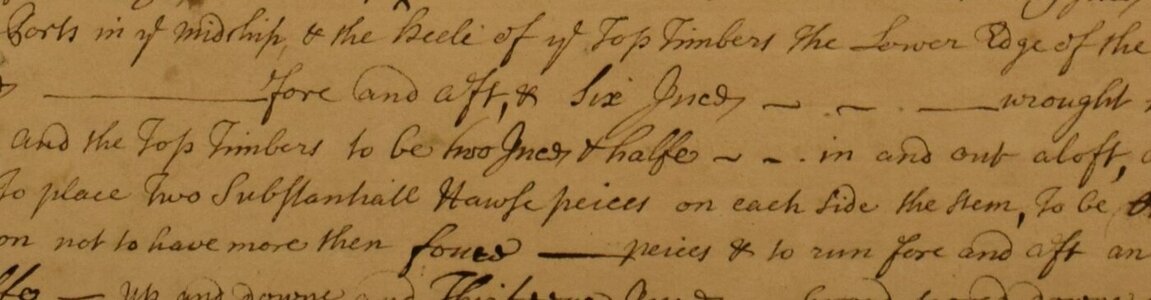 Ports in ye Midship, & the heele of ye Top Timbers the Lower Edge of the
fore and aft, & Six Inces wrought
and the Top Timbers to be two Inces & halfe in and out aloft,
To place Two Substantiall Hawse peices on each side the stem, To be
on not to have more then foure peices & to run fore and aft an
up and downe and